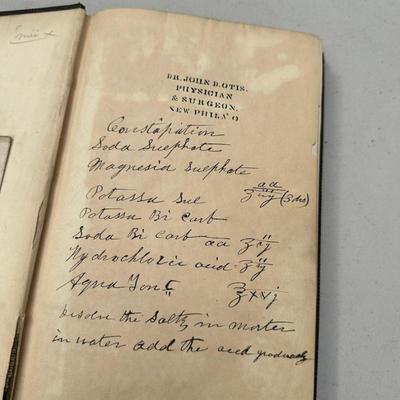 DR. JOHN D. OTIS.
PHYSICIAN
& SURGEON.
NEW PHILA' O
Constapation
Soda Sulphate
Magnesia Sulphate
aa
Potassa Sul ʒiij (3 drs)
Potassa Bi Carb
Soda Bi Carb aa ʒij
Hydrochloric acid ʒij
Aqua Font ℥xvj
the Salts in morter
in water add the acid gradualy